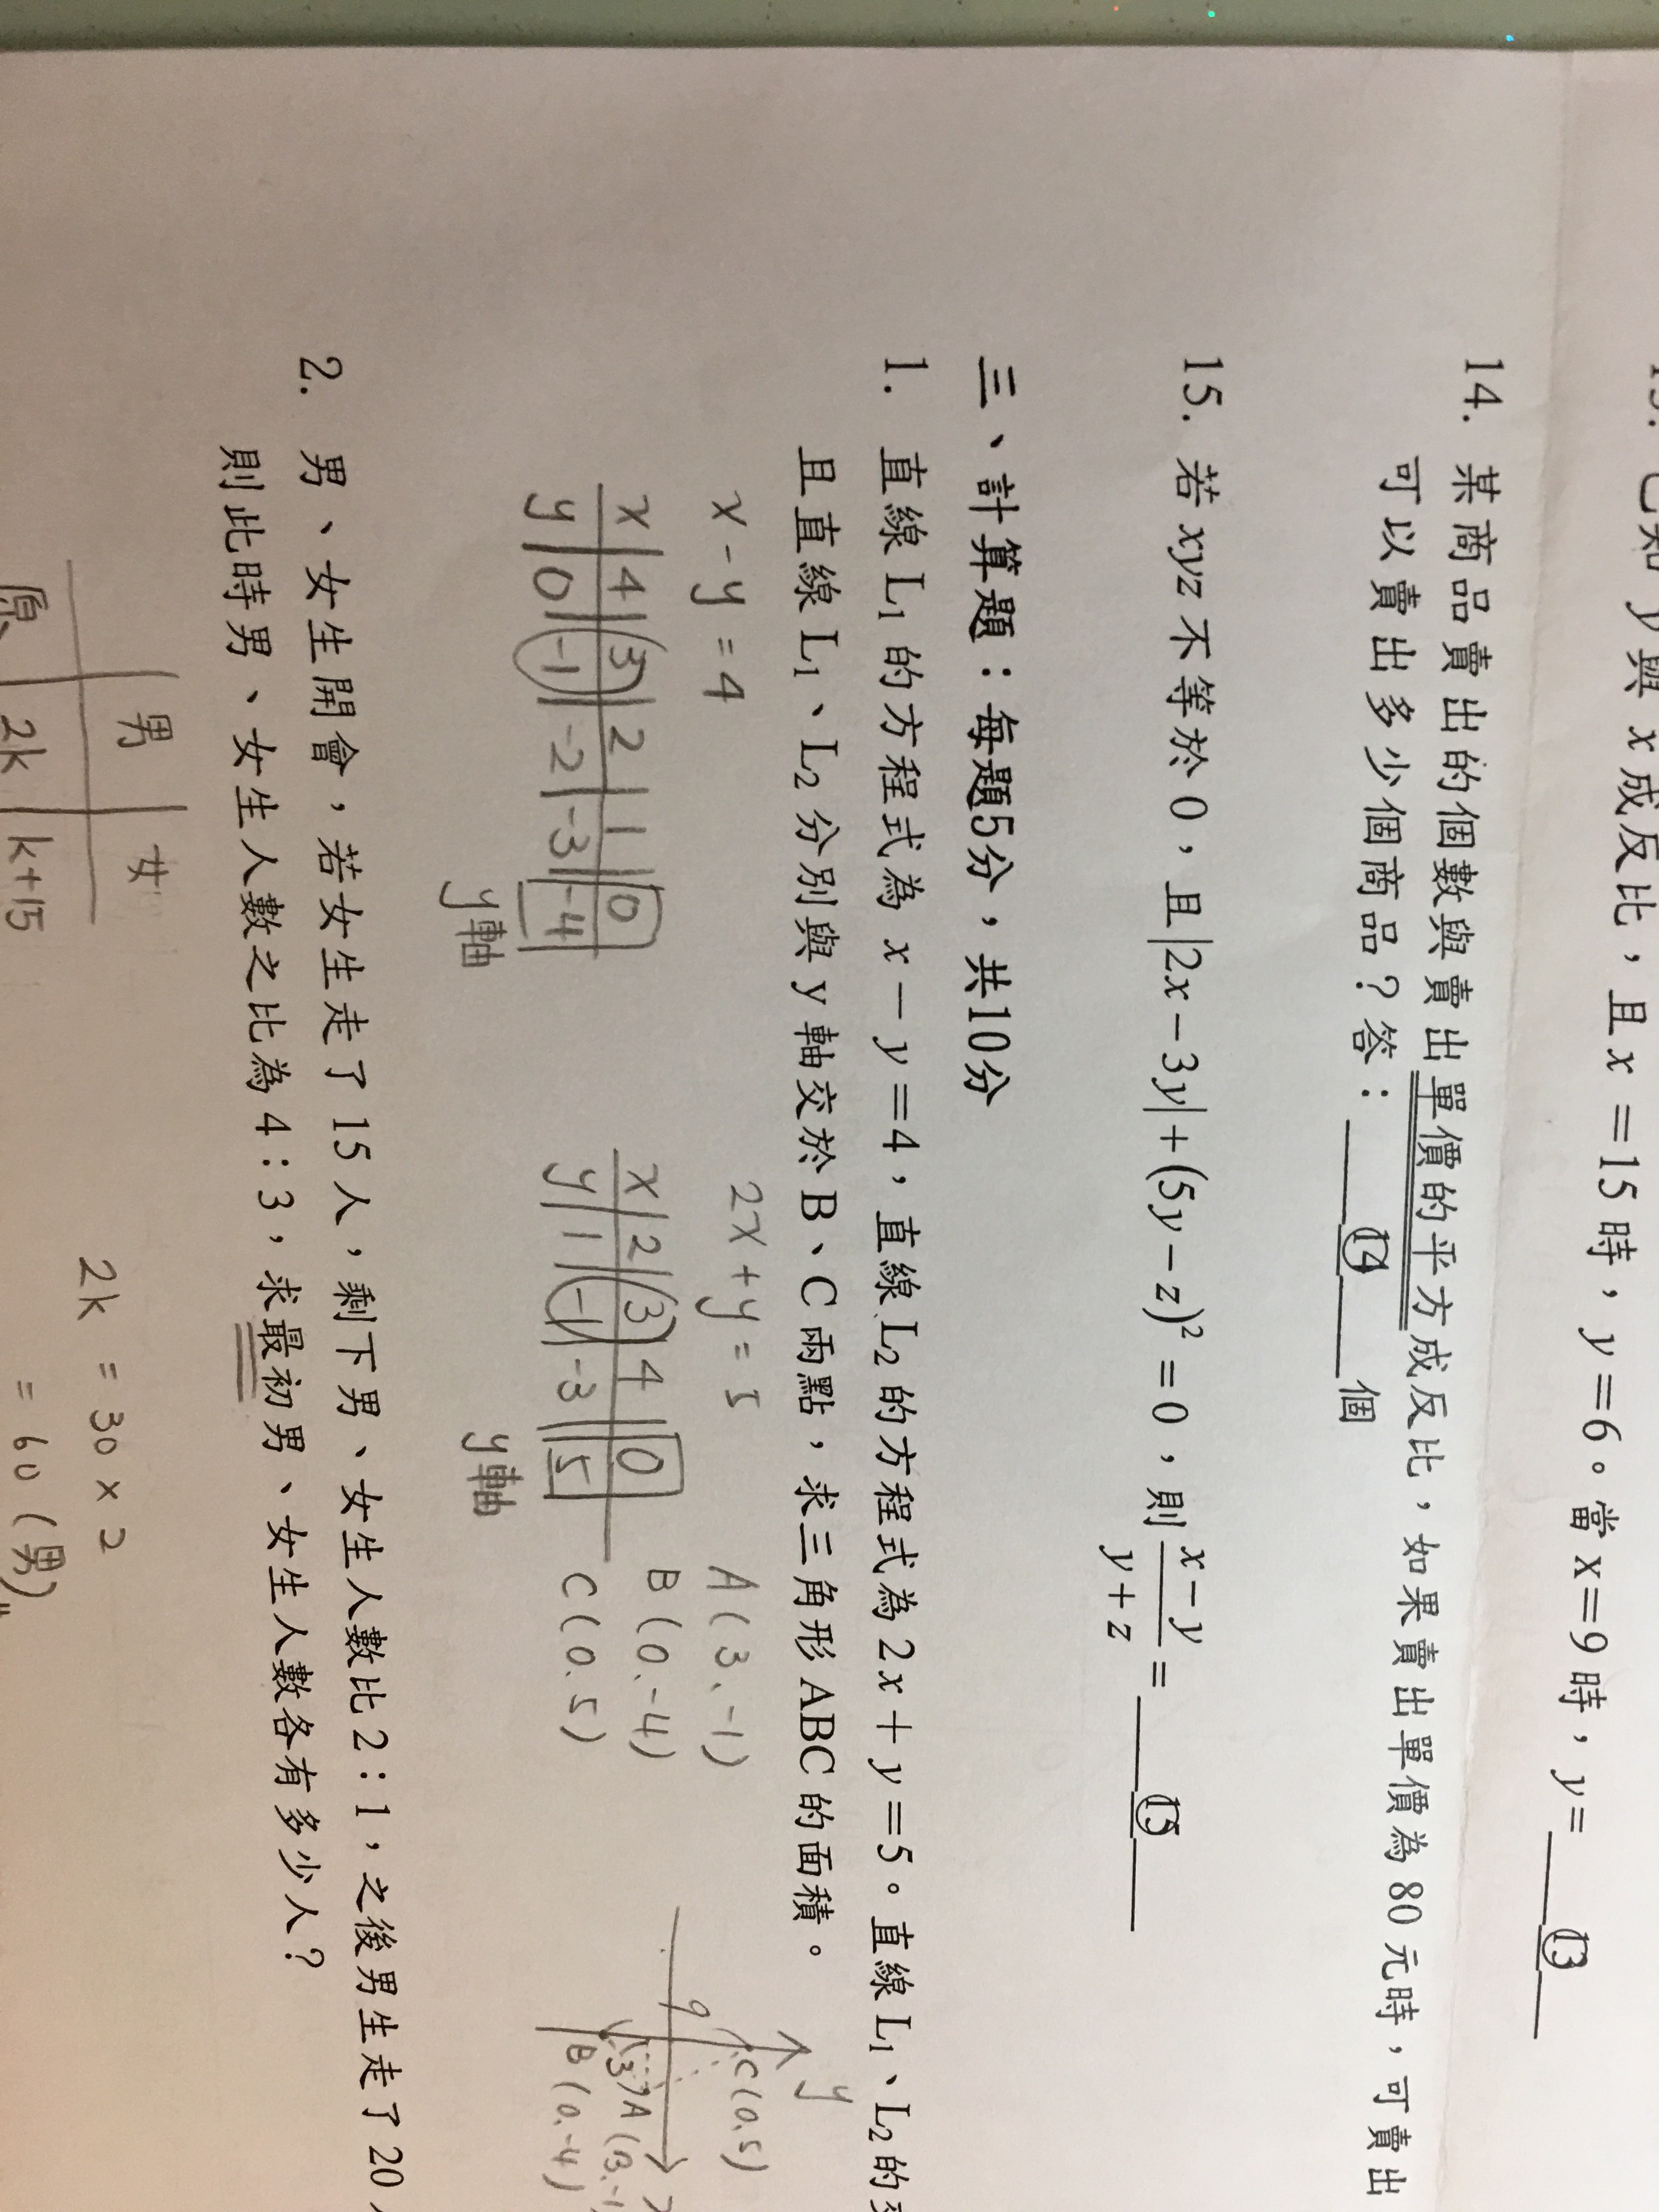 已知 y 與 x 成反比，且 x =15 時，y =6。當 x=9 時，y= ⑬
14. 某商品賣出的個數與賣出單價的平方成反比，如果賣出單價為 80 元時，可賣出
可以賣出多少個商品？答： ⑭ 個
15. 若 xyz 不等於 0，且|2x－3y|＋(5y－z)²＝0，則 (x－y)/(y＋z) ＝ ⑮
三、計算題：每題5分，共10分
1. 直線 L₁ 的方程式為 x－y＝4，直線 L₂ 的方程式為 2x＋y＝5。直線 L₁、L₂ 的
且直線 L₁、L₂ 分別與 y 軸交於 B、C 兩點，求三角形 ABC 的面積。
x - y = 4
x | 4 | 3 | 2 | 1 | 0
y | 0 | -1 | -2 | -3 | -4
y軸
2x + y = 5
x | 2 | 3 | 4 | 0
y | 1 | -1 | -3 | 5
y軸
A (3、-1)
B (0、-4)
C (0、5)
y
C (0、5)
9
3
A (3、-1
B (0、-4)
2. 男、女生開會，若女生走了 15 人，剩下男、女生人數比 2：1，之後男生走了 20
則此時男、女生人數之比為 4：3，求最初男、女生人數各有多少人？
男 女
原 2k k+15
2k = 30 × 2
= 60 (男)